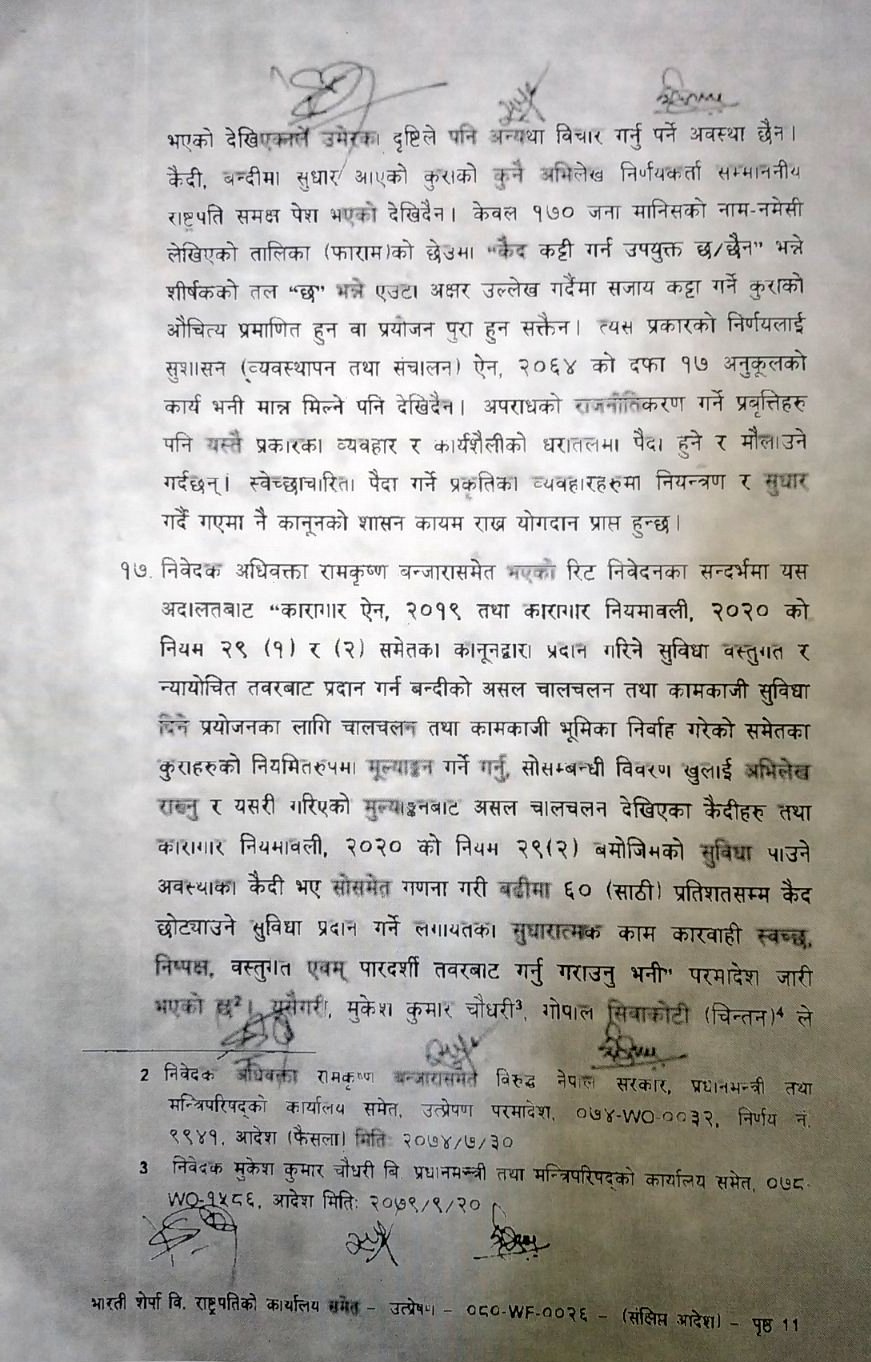 भएको देखिएकाले उमेरका दृष्टिले पनि अन्यथा विचार गर्नु पर्ने अवस्था छैन।
कैदी, बन्दीमा सुधार आएको कुराको कुनै अभिलेख निर्णयकर्ता सम्माननीय
राष्ट्रपति समक्ष पेश भएको देखिदैन। केवल १७० जना मानिसको नाम-नमेसी
लेखिएको तालिका (फाराम)को छेउमा "कैद कट्टी गर्न उपयुक्त छ/छैन" भन्ने
शीर्षकको तल "छ" भन्ने एउटा अक्षर उल्लेख गर्दैमा सजाय कट्टा गर्ने कुराको
औचित्य प्रमाणित हुन वा प्रयोजन पुरा हुन सक्तैन। त्यस प्रकारको निर्णयलाई
सुशासन (व्यवस्थापन तथा संचालन) ऐन, २०६४ को दफा १७ अनुकूलको
कार्य भनी मान्न मिल्ने पनि देखिदैन। अपराधको राजनीतिकरण गर्ने प्रबृत्तिहरु
पनि यस्तै प्रकारका व्यवहार र कार्यशैलीको धरातलमा पैदा हुने र मौलाउने
गर्दछन्। स्वेच्छाचारिता पैदा गर्ने प्रकृतिका व्यवहारहरुमा नियन्त्रण र सुधार
गर्दै गएमा नै कानूनको शासन कायम राख्न योगदान प्राप्त हुन्छ।
१७. निवेदक अधिवक्ता रामकृष्ण बन्जारासमेत भएको रिट निवेदनका सन्दर्भमा यस
अदालतबाट "कारागार ऐन, २०१९ तथा कारागार नियमावली, २०२० को
नियम २९ (१) र (२) समेतका कानूनद्वारा प्रदान गरिने सुविधा वस्तुगत र
न्यायोचित तवरबाट प्रदान गर्न बन्दीको असल चालचलन तथा कामकाजी सुविधा
दिने प्रयोजनका लागि चालचलन तथा कामकाजी भूमिका निर्वाह गरेको समेतका
कुराहरुको नियमितरुपमा मूल्याङ्कन गर्ने गर्नु, सोसम्बन्धी विवरण खुलाई अभिलेख
राख्नु र यसरी गरिएको मुल्याङ्कनबाट असल चालचलन देखिएका कैदीहरु तथा
कारागार नियमावली, २०२० को नियम २९(२) बमोजिमको सुविधा पाउने
अवस्थाका कैदी भए सोसमेत गणना गरी बढीमा ६० (साठी) प्रतिशतसम्म कैद
छोट्याउने सुविधा प्रदान गर्ने लगायतका सुधारात्मक काम कारवाही स्वच्छ,
निष्पक्ष, वस्तुगत एवम् पारदर्शी तवरबाट गर्नु गराउनु भनी" परमादेश जारी
भएको छ²। यसैगरी, मुकेश कुमार चौधरी³, गोपाल सिवाकोटी (चिन्तन)⁴ ले
2 निवेदक अधिवक्ता रामकृष्ण बन्जारासमेत विरुद्ध नेपाल सरकार, प्रधानमन्त्री तथा
मन्त्रिपरिषद्को कार्यालय समेत, उत्प्रेषण परमादेश, ०७४-WO-००३२, निर्णय नं.
९९४१, आदेश (फैसला) मितिः २०७४/७/३०
3 निवेदक मुकेश कुमार चौधरी वि. प्रधानमन्त्री तथा मन्त्रिपरिषद्को कार्यालय समेत, ०७८-
WO-१५८६, आदेश मितिः २०७९/९/२०
भारती शेर्पा वि. राष्ट्रपतिको कार्यालय समेत – उत्प्रेषण – ०८०-WF-००२६ – (संक्षिप्त आदेश) – पृष्ठ 11